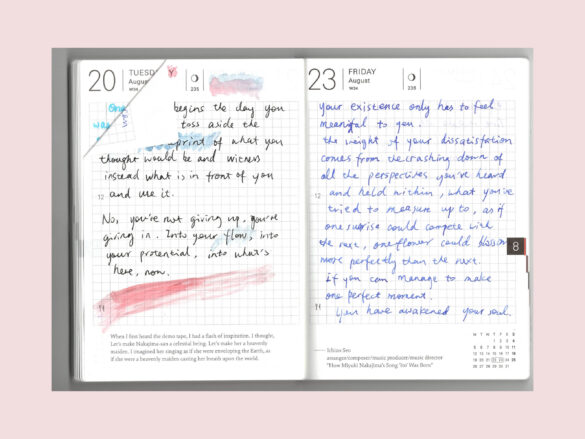 20
TUESD
August
W34
235
One
way
begins the day you
toss aside the
print of what you
thought would be and witness
instead what is in front of you
and use it.
12
No, you're not giving up, you're
giving in. Into your flow, into
your protential, into what's
here, now.
When I first heard the demo tape, I had a flash of inspiration. I thought,
Let's make Nakajima-san a celestial being. Let's make her a heavenly
maiden. I imagined her singing as if she were enveloping the Earth, as
if she were a heavenly maiden casting her breath upon the world.
23
FRIDAY
August
W34
236
your existence only has to feel
meaningful to you.
the weight of your dissatisfation
comes from the crashing down of
all the perspectives you've heard
12
and held within, what you've
tried to measure up to, as if
one sunrise could compete with
the next, one flower could blossom
8
more perfectly than the next.
If you can manage to make
one perfect moment.
You have awakened your soul.
Ichizo Seo
arranger/composer/music producer/music director
"How Miyuki Nakajima's Song 'Ito' Was Born"
M T W T F S S
1 2 3 4
5 6 7 8 9 10 11
12 13 14 15 16 17 18
19 20 21 22 23 24 25
26 27 28 29 30 31